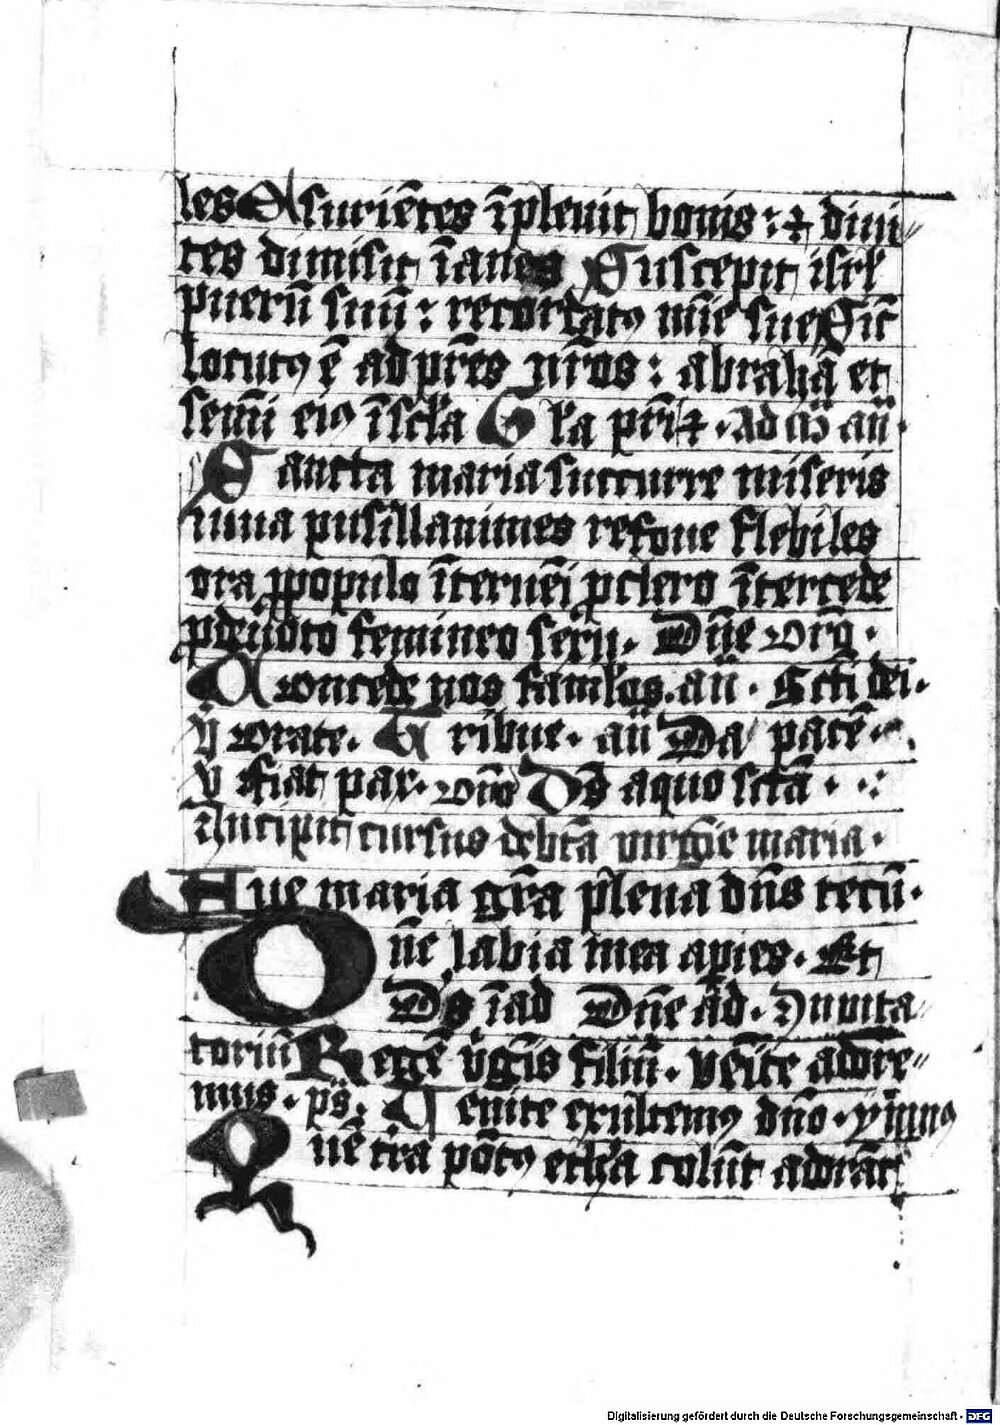 les Esuriētes īpleuit bonis: ⁊ diui〃
tes dimisit īanes Suscepit isrl̄
puerū suū: recordatꝰ mīe sue Sic̄
locutꝰ ē ad pr̄es nr̄os: abrahā et
semī eiꝰ ī scl̄a Gl̄a pr̄i ⁊ · Ad m̄ an̄ ·
Sancta maria succurre miseris
iuua pusillanimes refoue flebiles
ora ꝓ populo īterueī ꝓ clero ītercede
ꝓ deuoto femineo sexu · Dn̄e
Concede nos famlōs · an̄ · Scti dei ·
ꝟ orate · Tribue · an̄ Da pacē ·
ꝟ fiat pax · Ds̄ a quo sctā · · :
Incipit cursus de bt̄a virḡie maria ·
Aue maria gr̄a plena dn̄s tecū ·
Dn̄e labia mea aꝑies · Et
Ds̄ ī ad Dn̄e ad · Inuita〃
toriū Regē vḡis filiū · veīte adore〃
mus · ps̄ · Uenite exultemꝰ dn̄o · ymnꝰ
Quē tr̄a pōtꝰ ethr̄a colūt adorāt
Digitalisierung gefördert durch die Deutsche Forschungsgemeinschaft - DFG